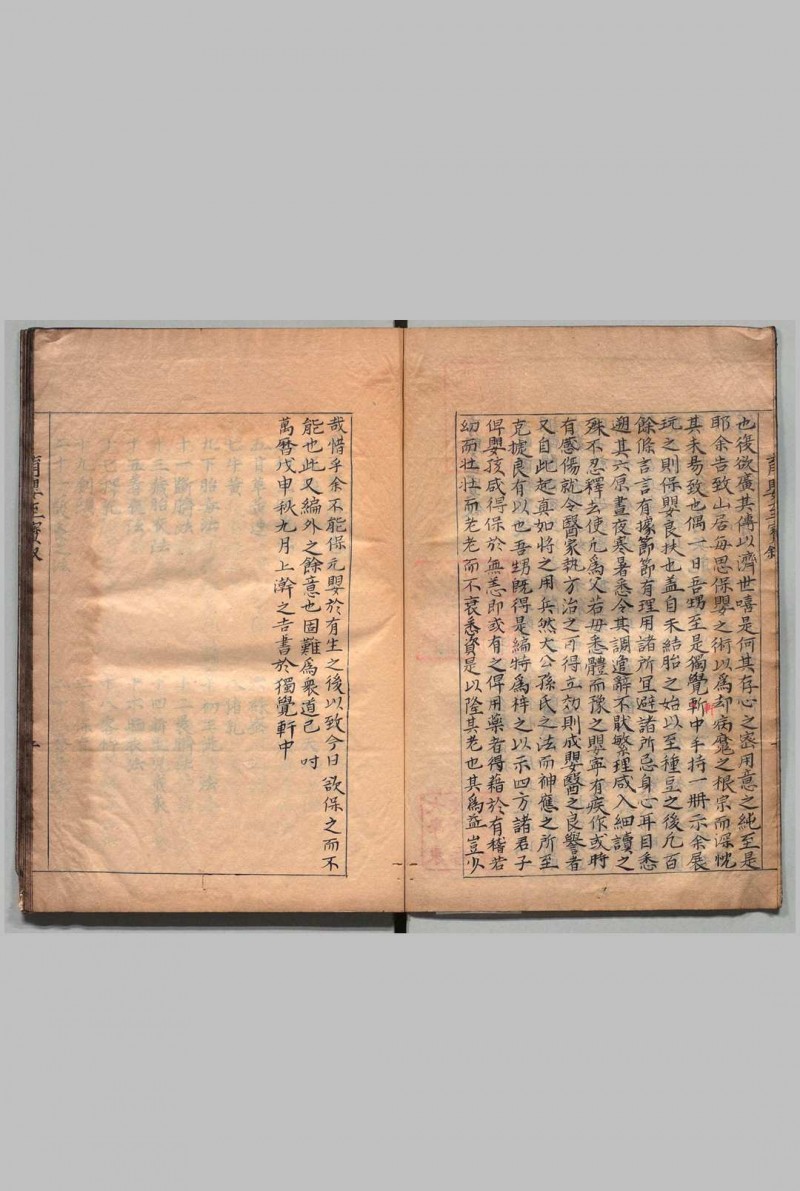 也後欲廣其傳以濟世嘻是何其存心之密用意之純至是
耶余告致山居每思保嬰之術以為却病魔之根宗而深忱
其未易致也偶一日吾甥至是獨覺軒中手持一冊示余展
玩之則保嬰良扶也蓋自未結胎之始以至種豆之後凢百
餘條言言有據節節有理用諸所宜避諸所忌身心耳目悉
遡其六原晝夜寒暑悉令其調適辭不猒繁理咸入細讀之
殊不忍釋去使凢為父若母悉體而豫之嬰寧有疾作或時
有感傷就令醫家執方治之可得立効則成嬰醫之良譽者
又自此起真如將之用兵然大公孫氏之法而神應之所至
克㨿良有以也吾甥既得是編特為梓之以示四方諸君子
俾嬰孩咸得保於無恙即或有之俾用藥者得藉於有稽若
幼而壮壮而老老而不衰悉資是以陰其老也其為益豈少
哉惜乎余不能保元嬰於有生之後以致今日欲保之而不
能也此又編外之餘意也固難為衆道已 旹
萬曆戊申秋九月上澣之吉書於獨覺軒中
育嬰至寶錄